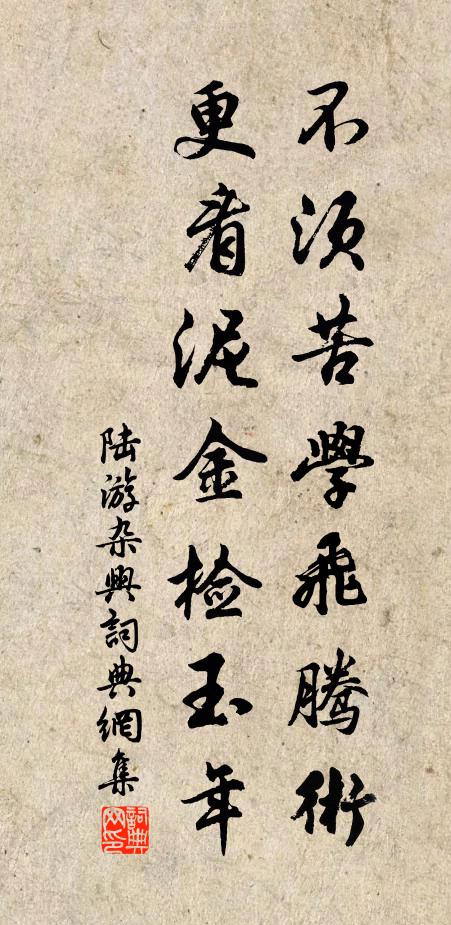 不須苦學飛騰術
更看泥金檢玉年
陆游杂興詞典網集
詞典网印